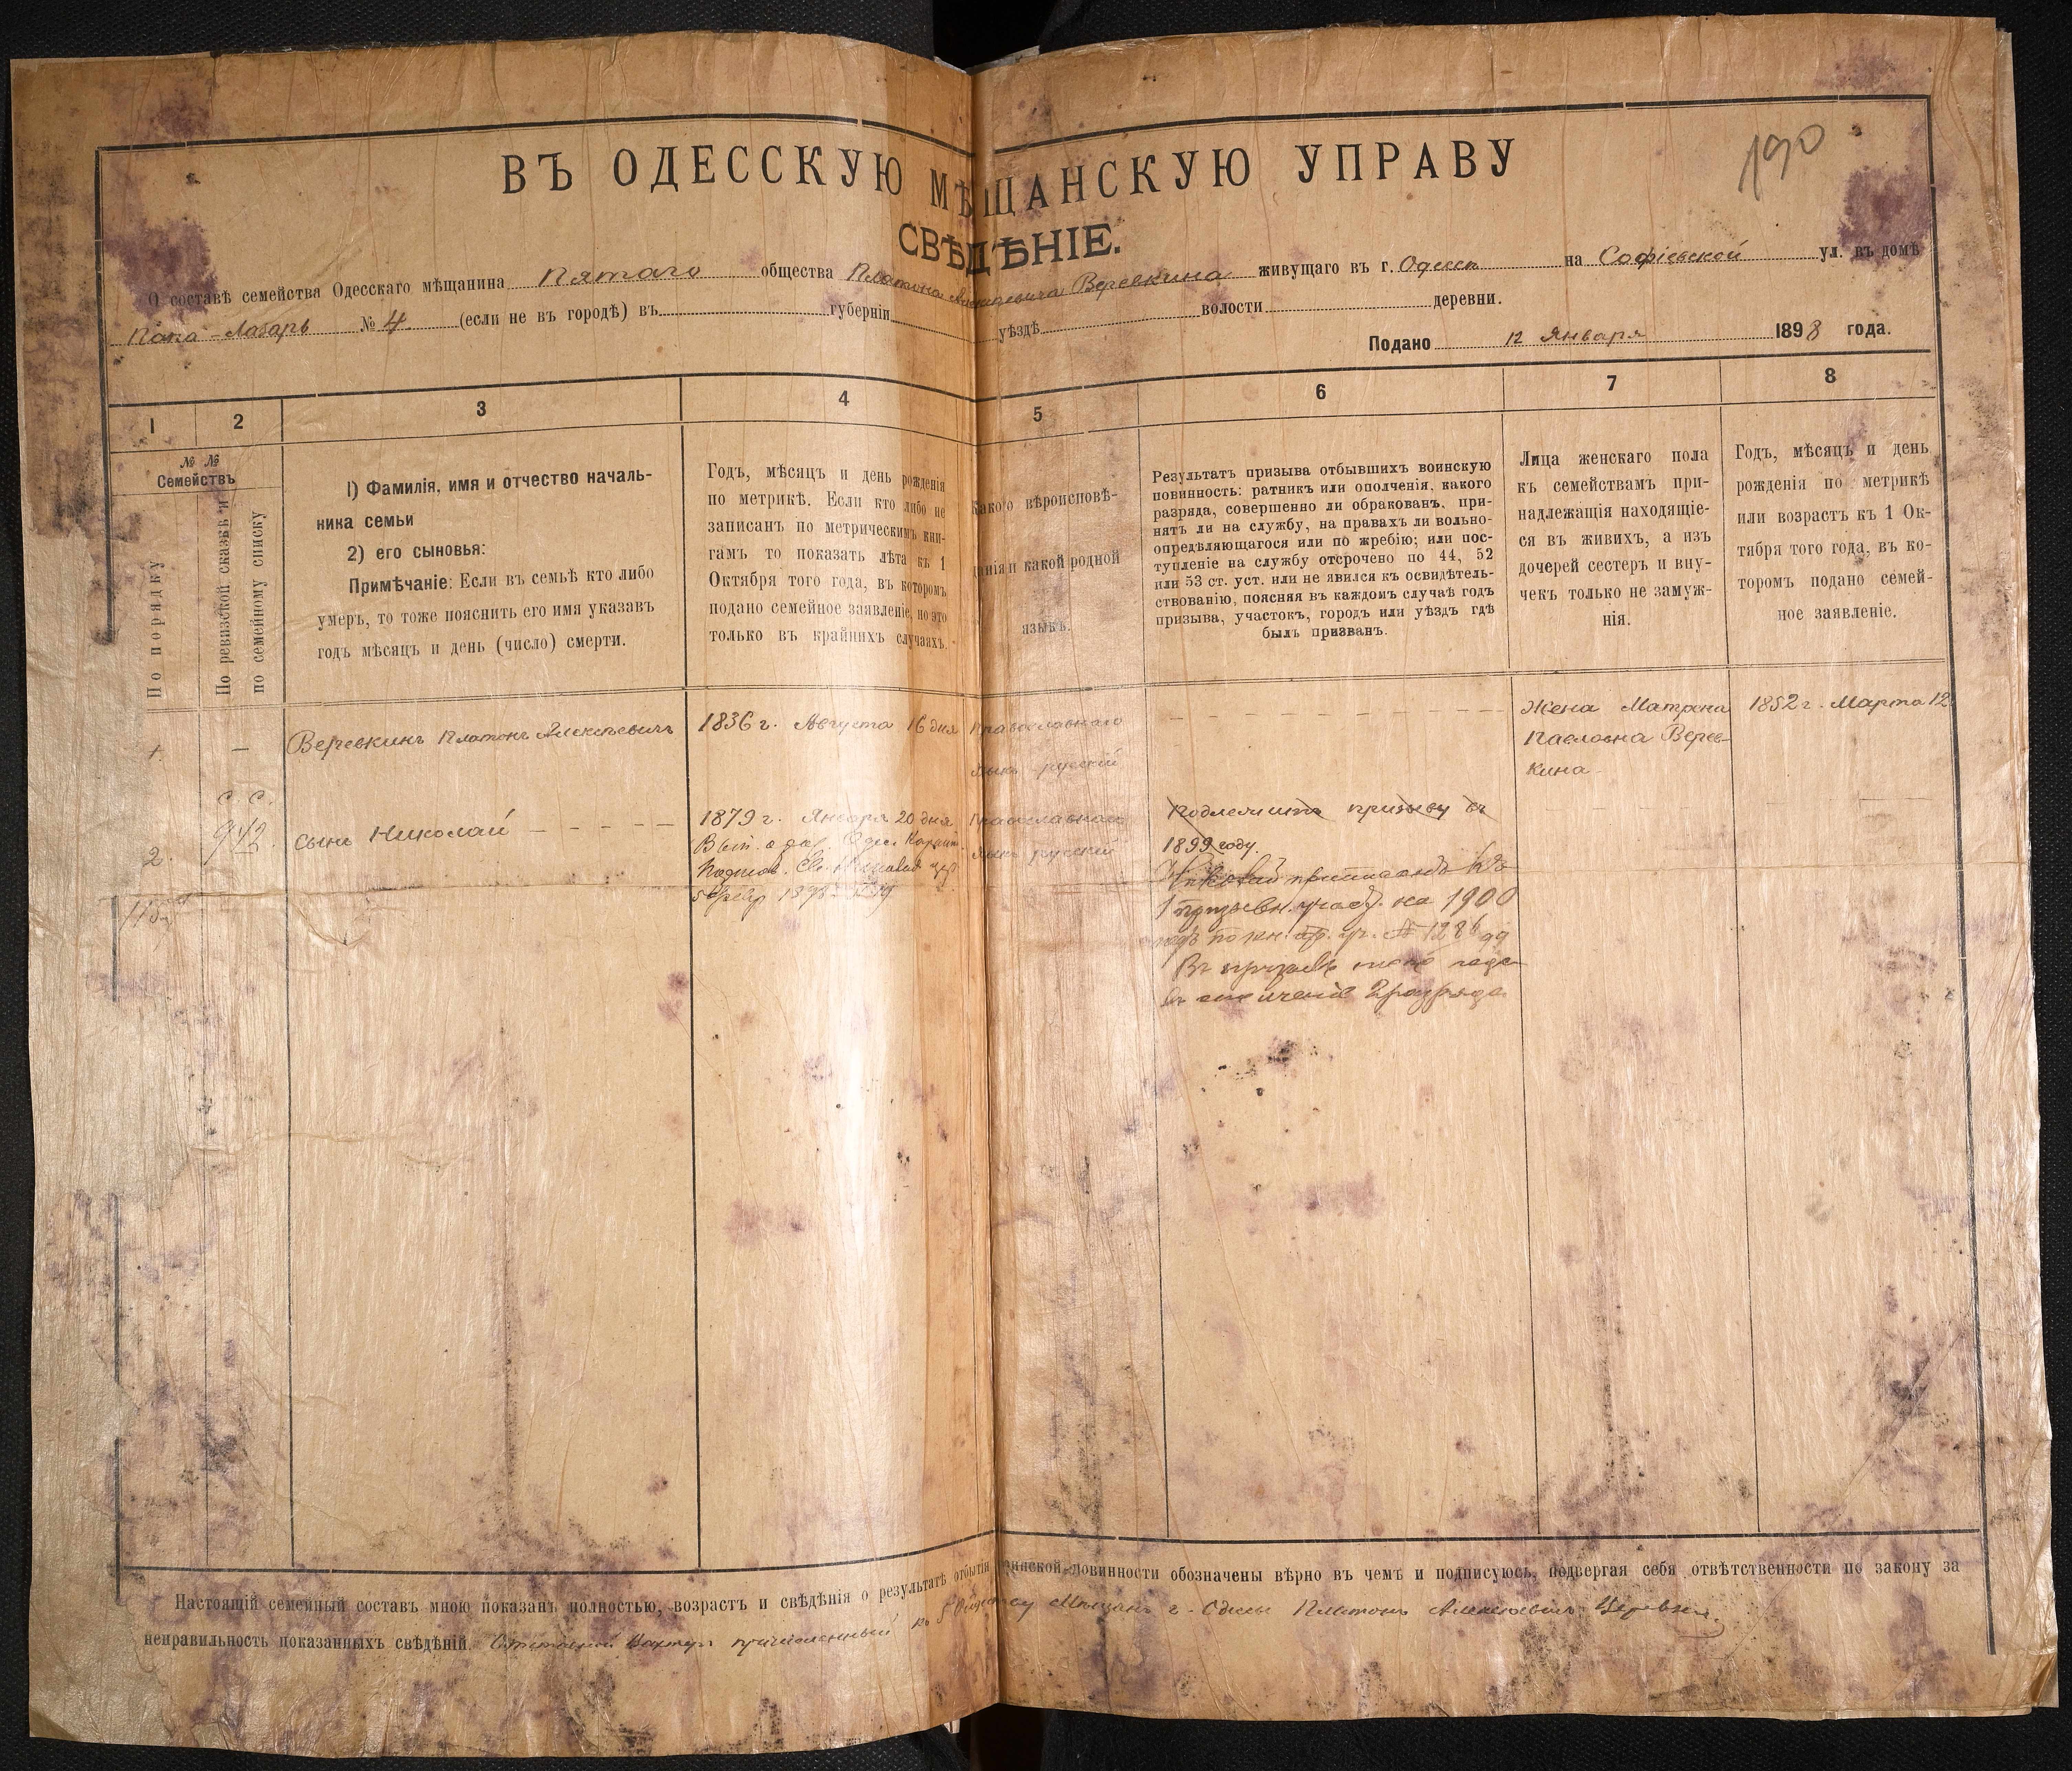 190
ВЪ ОДЕССКУЮ МѢЩАНСКУЮ УПРАВУ
СВѢДѢНІЕ.
О составѣ семейства Одесскаго мѣщанина Пятаго общества Платона Алексѣевича Веревкина живущаго въ г. Одессѣ на Софіевской ул. въ домѣ
Папа-Лазарь № 4 (если не въ городѣ) въ губерніи уѣздѣ волости деревни.
Подано 12 Января 1898 года.
1 2 3 4 5 6 7 8
№ №
Семействъ
По порядку
По ревизской сказкѣ и
по семейному списку
1) Фамилія, имя и отчество началь-
ника семьи
2) его сыновья:
Примѣчаніе: Если въ семьѣ кто либо
умеръ, то тоже пояснить его имя указавъ
годъ мѣсяцъ и день (число) смерти.
Годъ, мѣсяцъ и день рожденія
по метрикѣ. Если кто либо не
записанъ по метрическимъ кни-
гамъ то показать лѣта къ 1
Октября того года, въ которомъ
подано семейное заявленіе, но это
только въ крайнихъ случаяхъ.
Какого вѣроисповѣ-
данія и какой родной
языкъ.
Результатъ призыва отбывшихъ воинскую
повинность: ратникъ или ополченія, какого
разряда, совершенно ли обракованъ, при-
нятъ ли на службу, на правахъ ли вольно-
опредѣляющагося или по жребію; или пос-
тупленіе на службу отсрочено по 44, 52
или 53 ст. уст. или не явился къ освидѣтель-
ствованію, поясняя въ каждомъ случаѣ годъ
призыва, участокъ, городъ или уѣздъ гдѣ
былъ призванъ.
Лица женскаго пола
къ семействамъ при-
надлежащія находящіе-
ся въ живихъ, а изъ
дочерей сестеръ и вну-
чекъ только не замуж-
нія.
Годъ, мѣсяцъ и день
рожденія по метрикѣ
или возрастъ къ 1 Ок-
тября того года, въ ко-
торомъ подано семей-
ное заявленіе.
1. — Веревкинъ Платонъ Алексѣевичъ 1836 г. Августа 16 дня Православнаго
языкъ русскій
Жена Матрена
Павловна Верев-
кина
1852 г. Марта 12
с. с.
942.
2. сынъ Николай 1879 г. Января 20 дня Православнаго
языкъ русскій
5 Февр 1898
Подлежитъ призыву въ
1899 году.
Николай приписанъ къ
1 призывн. участ. на 1900
годъ по кн. пр. уч. № 1286
Въ призывъ года
въ ополченіе 2 разряда
Настоящій семейный составъ мною показанъ полностью, возрастъ и свѣдѣнія о результатѣ отбытія воинской повинности обозначены вѣрно въ чемъ и подписуюсь, подвергая себя отвѣтственности по закону за
неправильность показанныхъ свѣдѣній. Отставной Вахтеръ причисленный къ 5 Обществу Мѣщанъ г. Одессы Платонъ Алексѣевичъ Веревкинъ